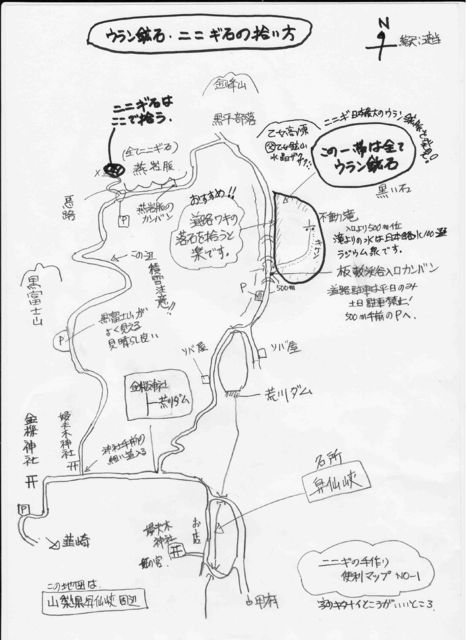 ウラン鉱石・ニニギ石の拾い方
N
縮尺:適当
金峰山
黒平部落
ニニギ石は
ここで拾う.
(全てニニギ石)
燕岩脈
馬蹄
P
燕岩脈の
カンバン
この辺
積雪注意!!
黒富士山
P
黒富士山が
よく見える
見晴らし良い
おすすめ!!
道路ワキの
落石を拾うと
楽です。
乙女高原
乙女鉱山
水晶ザクザク
この一帯は全て
ウラン鉱石
黒い石
不動滝
入口より500m位
滝よりの水は日本銘水100選
ラジウム泉です。
板敷渓谷入口カンバン
500m
道路駐車は平日のみ
土日駐車禁止!
500m手前のPへ.
P
ソバ屋
ソバ屋
荒川ダム
金桜神社
荒川ダム
金桜神社
夫婦木神社
神社手前の
細い道入る
P
韮崎
名所
昇仙峡
お店
夫婦木
神社
姫の宮
甲府
この地図は
山梨県昇仙峡周辺
ニニギの手作り
便利マップ NO-1
字のキタナイところがいいところ